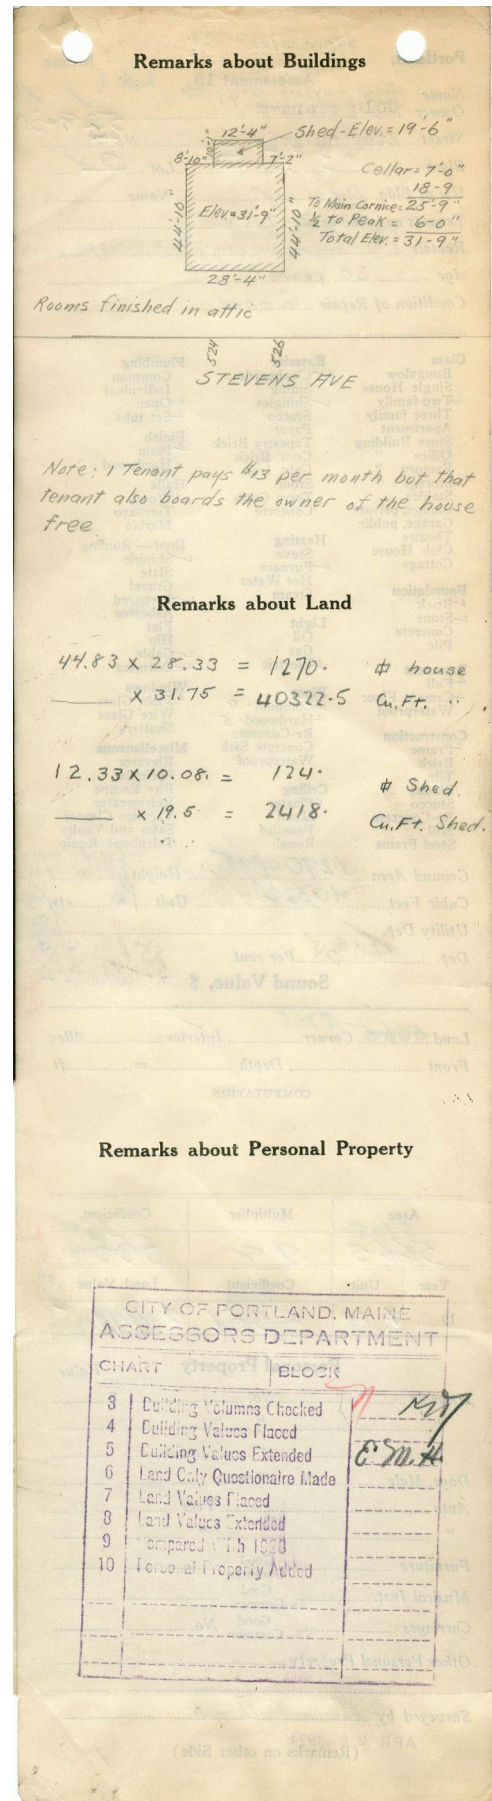 Remarks about Buildings
12'-4"
10'-1"
Shed-Elev.=19'-6"
8'-10"
7'-2"
Cellar=7'-0"
18-9
To Main Cornice=25'-9"
½ to Peak= 6-0"
Total Elev.=31-9"
44'-10"
Elev.=31'-9"
44'-10"
28'-4"
Rooms finished in attic
524 526
STEVENS AVE
Note: 1 Tenant pays $13 per month but that
tenant also boards the owner of the house
free
Remarks about Land
44.83 x 28.33 = 1270. ⌗ house
x 31.75 = 40322.5 Cu.Ft. "
12.33 x 10.08. = 124. ⌗ Shed.
x 19.5 = 2418. Cu.Ft. Shed.
Remarks about Personal Property
CITY OF PORTLAND, MAINE
ASSESSORS DEPARTMENT
CHART BLOCK
3 Building Volumns Checked
4 Building Values Placed
5 Building Values Extended E.M.H.
6 Land Only Questionaire Made
7 Land Values Placed
8 Land Values Extended
9 Compared With
10 Personal Property Added